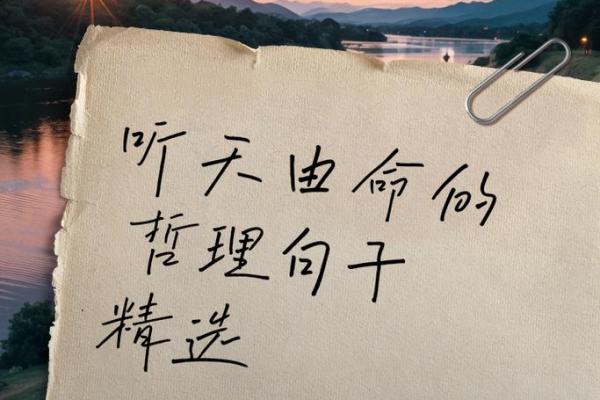 听天由命的
哲理句子
精选